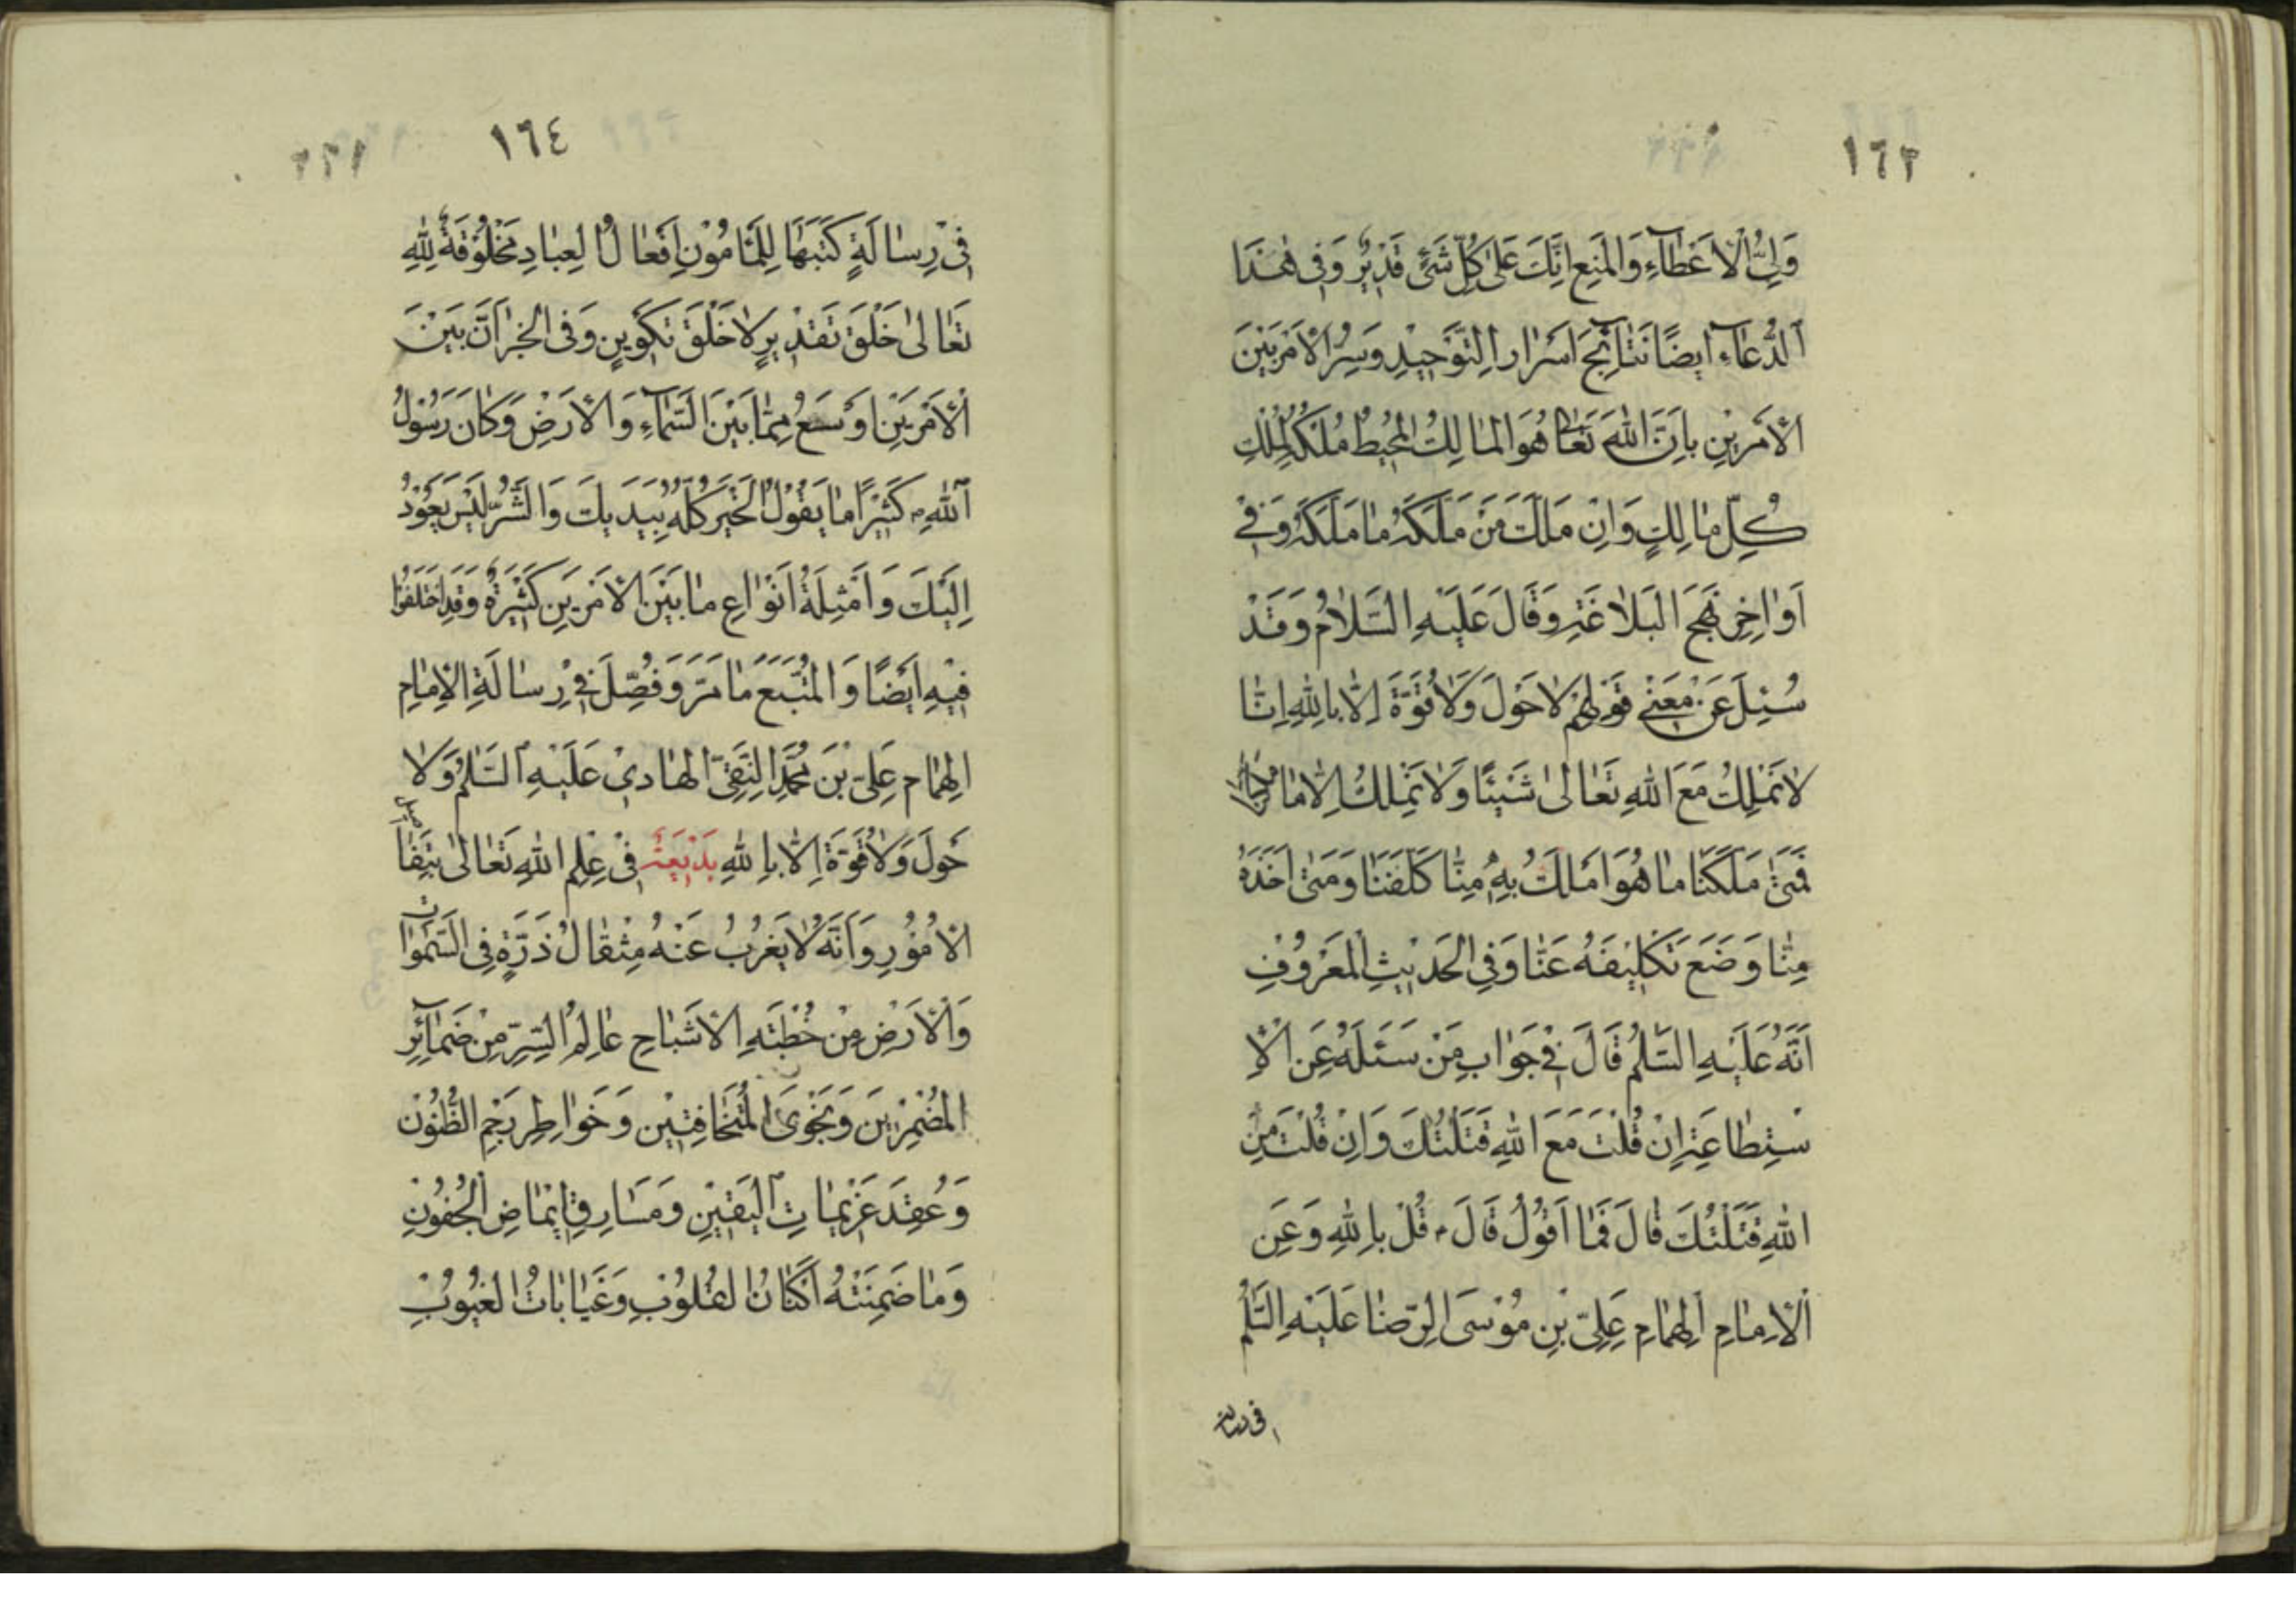 ١٦٣
وَلِيُّ الْاَعْطَآءِ وَالْمَنْعِ اِنَّكَ عَلىٰ كُلِّ شَيْئٍ قَدِيْرٌ وَفِى هٰذَا
اَلدُّعَآءِ اَيضًا نَتٰآئِجَ اَسْرٰارِ التَّوْحِيْدِ وَسِرُّ الْاَمْرِ بَيْنَ
الْاَمْرَيْنِ بِاَنَّ اللّٰهَ تَعٰالىٰ هُوَ الْمٰالِكُ الْمُحِيْطُ مُلْكُهُ لِمُلْكِ
كُلِّ مٰالِكٍ وَاِنْ مَلَكَ مَنْ مَلَّكَهُ مٰا مَلَّكَهُ وَفِي
اَوٰاخِرِ نَهْجِ الْبَلٰاغَةِ وَقَالَ عَلَيْهِ السَّلٰامُ وَقَدْ
سُئِلَ عَنْ مَعْنٰى قَوْلِهِمْ لٰا حَوْلَ وَلٰا قُوَّةَ اِلّٰا بِاللّٰهِ اِنّٰا
لٰا نَمْلِكُ مَعَ اللّٰهِ تَعٰالىٰ شَيْئًا وَلٰا نَمْلِكُ اِلّٰا مٰا مَلَّكَنٰا
فَمَتىٰ مَلَّكَنٰا مٰا هُوَ اَمْلَكُ بِهِ مِنّٰا كَلَّفَنٰا وَمَتىٰ اَخَذَهُ
مِنّٰا وَضَعَ تَكْلِيْفَهُ عَنّٰا وَفِي الْحَدِيْثِ الْمَعْرُوْفِ
اَنَّهُ عَلَيْهِ السَّلٰمُ قَالَ فِيْ جَوٰابِ مَنْ سَئَلَهُ عَنِ الْاِ
سْتِطٰاعَةِ اِنْ قُلْتَ مَعَ اللّٰهِ قَتَلْتُكَ وَاِنْ قُلْتَ مِنَ
اللّٰهِ قَتَلْتُكَ قٰالَ فَمٰا اَقُوْلُ قٰالَ ؑ قُلْ بِاللّٰهِ وَعَنِ
الْاِمٰامِ الْهُمٰامِ عَلِيِّ بْنِ مُوْسَى الرِّضٰا عَلَيْهِ السَّلٰمُ
فى رسالة
١٦٤
فِىْ رِسٰالَةٍ كَتَبَهٰا لِلْمَأمُوْنِ اَفْعٰالُ الْعِبٰادِ مَخْلُوْقَةٌ لِلّٰهِ
تَعٰالىٰ خَلْقَ تَقْدِيْرٍ لٰا خَلْقَ تَكْوِينٍ وَفِى الْخَبَرِ اَنَّ بَيْنَ
الْاَمْرَيْنِ اَوْسَعُ مِمّٰا بَيْنَ السَّمٰآءِ وَالْاَرْضِ وَكٰانَ رَسُوْلُ
اللّٰهِ ؐ كَثِيْرًا مٰا يَقُوْلُ الْخَيْرُ كُلُّهُ بِيَدَيْكَ وَالشَّرُّ لَيْسَ يَعُوْدُ
اِلَيْكَ وَاَمْثِلَةُ اَنْوٰاعِ مٰا بَيْنَ الْاَمْرَيْنِ كَثِيْرَةٌ وَقَدِ اخْتَلَفُوْا
فِيْهِ اَيْضًا وَالْمُتَّبَعُ مٰا مَرَّ وَفُصِّلَ فِيْ رِسٰالَةِ الْاِمٰامِ
الْهُمٰامِ عَلِيِّ بْنِ مُحَمَّدٍ النَّقِيِّ الْهٰادِي عَلَيْهِ السَّلٰمُ وَلٰا
حَوْلَ وَلٰا قُوَّةَ اِلّٰا بِاللّٰهِ بَدِيْعَةٌ فِىْ عِلْمِ اللّٰهِ تَعٰالىٰ بِتَفٰاصيل
الْاُمُوْرِ وَاَنَّهُ لٰا يَعْزُبُ عَنْهُ مِثْقٰالُ ذَرَّةٍ فِى السَّمٰوٰات
وَالْاَرْضِ مِنْ خُطْبَةِ الْاَشْبٰاحِ عٰالِمُ السِّرِّ مِنْ ضَمٰآئِرِ
الْمُضْمِرِيْنَ وَنَجْوَى الْمُتَخٰافِتِيْنَ وَخَوٰاطِرِ رَجْمِ الظُّنُوْنِ
وَعُقَدِ عَزِيْمٰاتِ الْيَقِيْنِ وَمَسٰارِقِ اِيْمٰاضِ الْجُفُوْنِ
وَمٰا ضَمِنَتْهُ اَكْنٰانُ الْقُلُوْبِ وَغَيٰابٰاتُ الْغُيُوْبِ